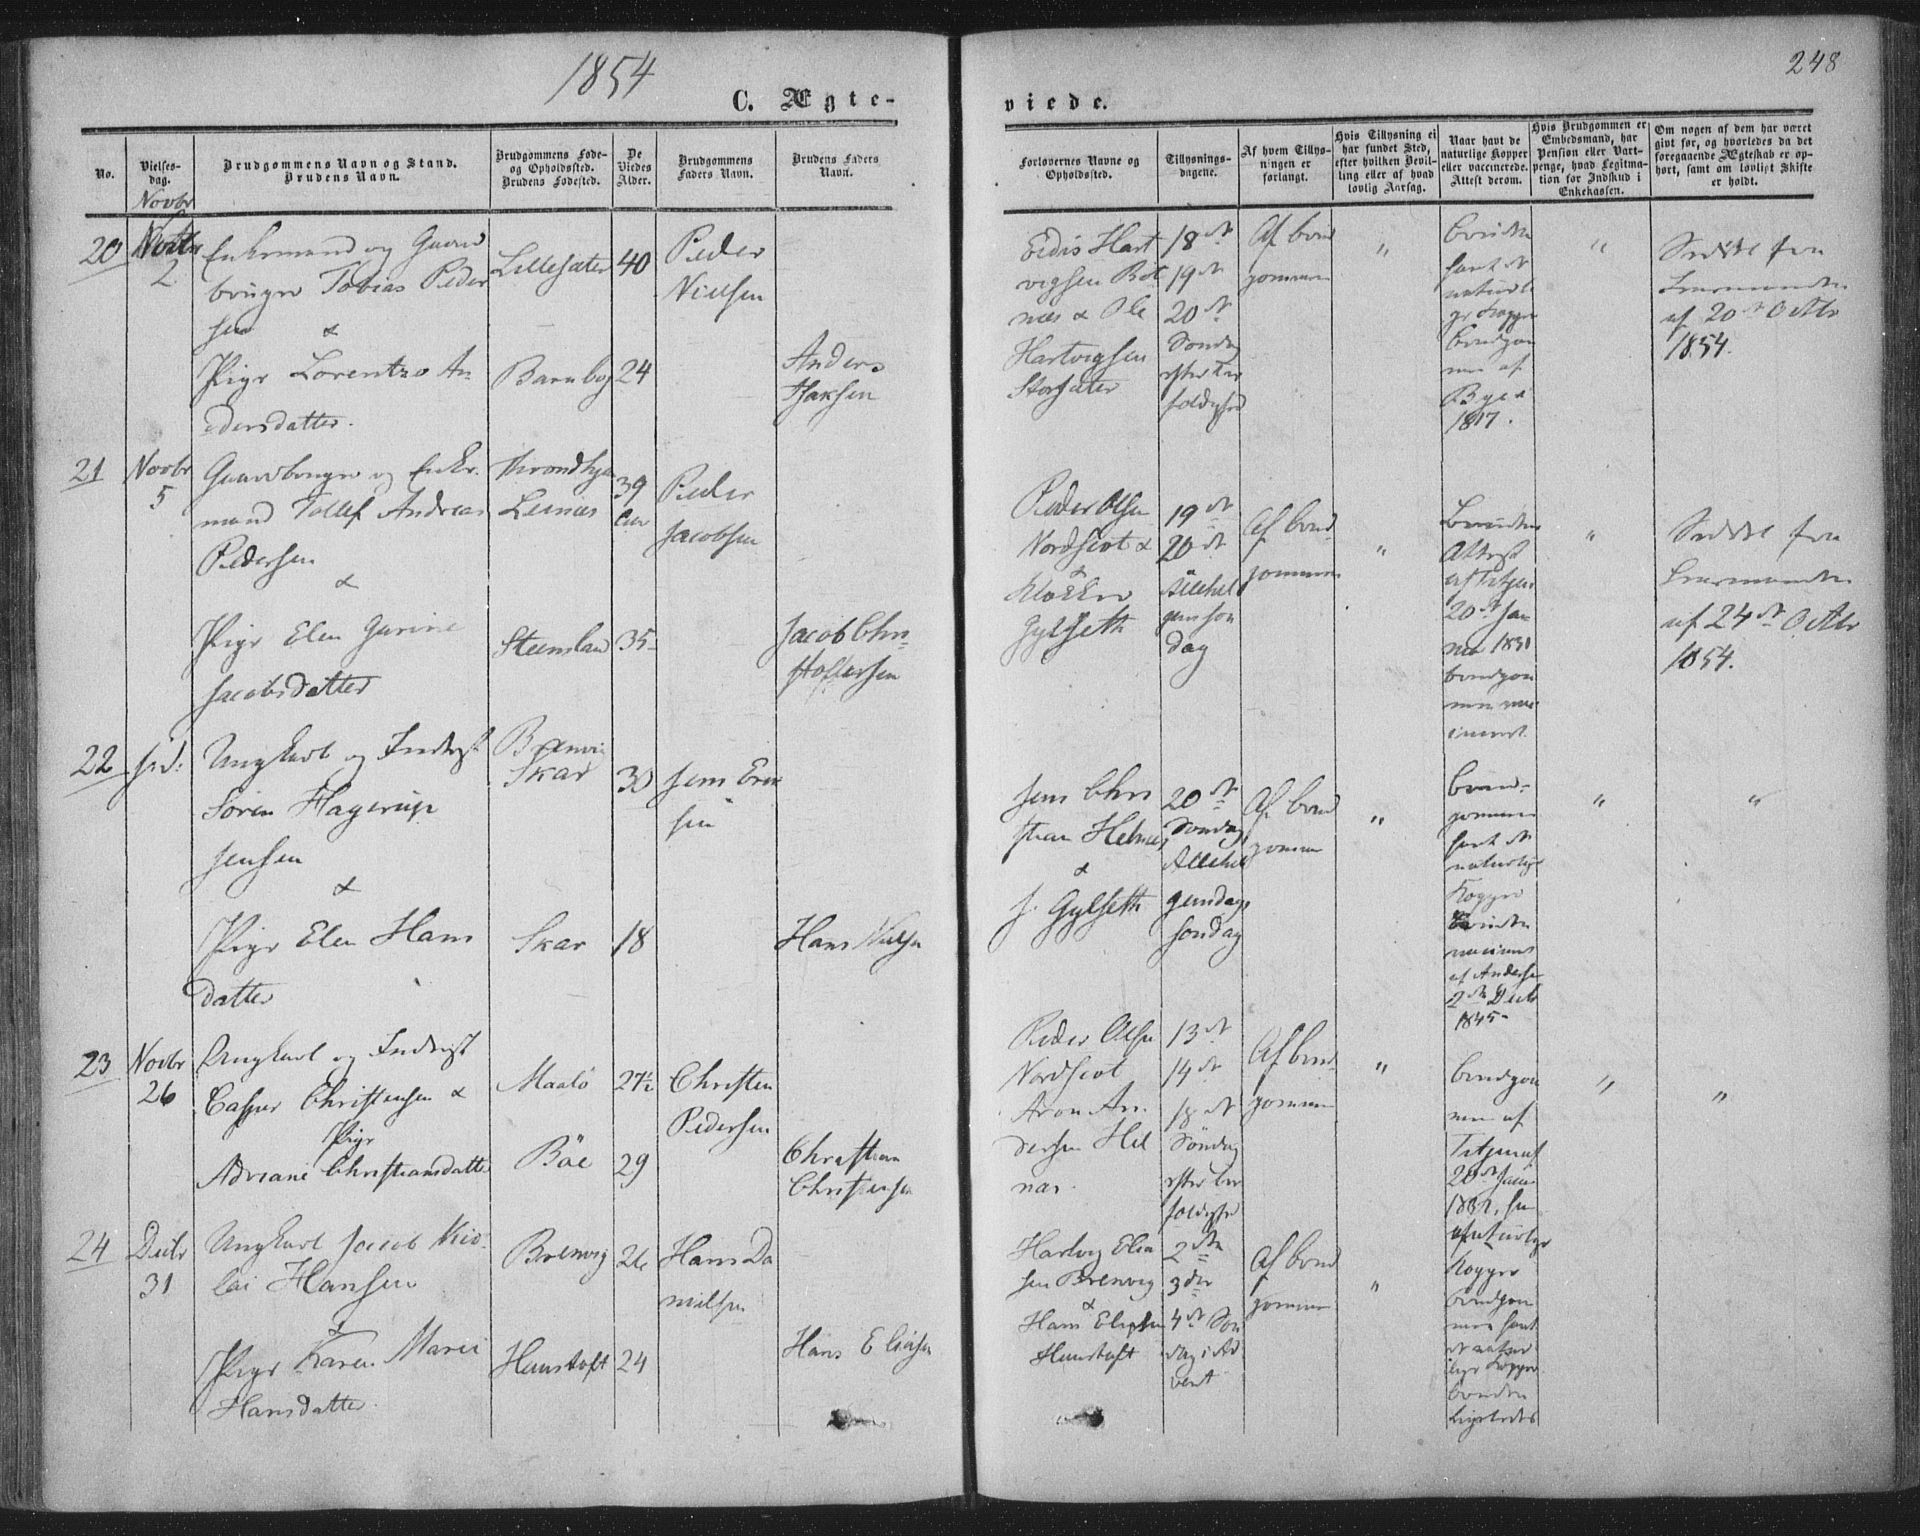 1854
248
C. Ægte-
viede.
No.
Vielses-
dag.
Brudgommens Navn og Stand.
Brudens Navn.
Brudgommens Føde-
og Opholdssted.
Brudens Fødested.
De
Viedes
Alder.
Brudgommens
Faders Navn.
Brudens Faders
Navn.
Forlovernes Navne og
Opholdssted.
Tillysnings-
dagene.
Af hvem Tillys-
ningen er
forlangt.
Hvis Tillysning ei
har fundet Sted,
efter hvilken Bevil-
ling eller af hvad
lovlig Aarsag.
Naar havt de
naturlige Kopper
eller vaccinerede.
Attest derom.
Hvis Brudgommen er
Embedsmand, har
Pension eller Vart-
penge, hvad Legitima-
tion for Indskud i
Enkekassen.
Om nogen af dem har været
givt før, og hvorledes da det
foregaaende Ægteskab er op-
hørt, samt om lovligt Skifte
er holdt.
Novbr
20
2
Enkemand og Gaard
bruger Tobias Peder
sen &
Pige Lorentze An
dersdatter.
Lillesæter
Barnbog
40
24
Peder
Nielsen
Anders
Isaksen
Edis Hart
vigsen Bot
næs & Ole
Hartvigsen
Storsæter
18de
19de
20de
Søndag
efter Tre
foldighed
Af Brud
gommen
"
havt de
naturli
ge Kopper
Brudgom
men af
1817.
"
Seddel fra
Lensmanden
af 20de Octbr
1854.
21
Novbr
5
Gaardbruger og Enke-
mand Tollef Andreas
Pedersen
&
Pige Elen Gurine
Jacobsdatter
Throndhjem
Leines
Steensland
39
35
Peder
Jacobsen
Jacob Chri
stoffersen
Peder Olsen
Nordscot &
Klokker
Gylseth
19de
20de
Allehel
gensson
dag
Af Brud
gommen
"
Bruden
Attest
af Tetjen
20de Jan
1831
Brudgom
men vac
cineret.
"
Seddel fra
Lensmanden
af 24de Octbr
1854.
22
Ungkarl og Inderst
Søren Hagerup
Jensen
&
Pige Elen Hans
datter
Brenvig
Skar
Skar
30
18
Jens Erik
sen
Hans Nielsen
Jens Chri
stian Helnes
&
J. Gylseth
20de
Søndag
Allehel
gendags
søndag
Af Brud
gommen
"
Brud-
gommen
havt de
naturlige
Kopper
Bruden
vaccineret
af Andersen
2de Decbr
1845.
"
"
23
Novbr
26
Ungkarl og Inderst
Casper Christensen &
Pige
Adriane Christiansdatter
Maalø
Bøe
27½
29
Christen
Pedersen
Christian
Christensen
Peder Olsen
Nordscot
Aron An-
dersen Hel
næs.
13de
14de
18de
Søndag
efter Tre
foldighed
Af Brud
gommen
"
Brudgom
men af
20de Jan
"
"
24
Decbr
31
Ungkarl Jacob Nico-
lai Hansen
&
Pige Karen Marie
Hansdatter.
Brenvig
Hunstoft
26
24
Hans Da
nielsen
Hans Eliasen
Hartvig Elia
sen Brenvig
&
Hans Eliasen
Hunstoft
2den
3die
4de Søn
dag i Ad
vent
Af Brud
gommen
"
naturlige
Kopper
Brudgom
men havt
de natur
lige Kopper
Bruden
ligeledes